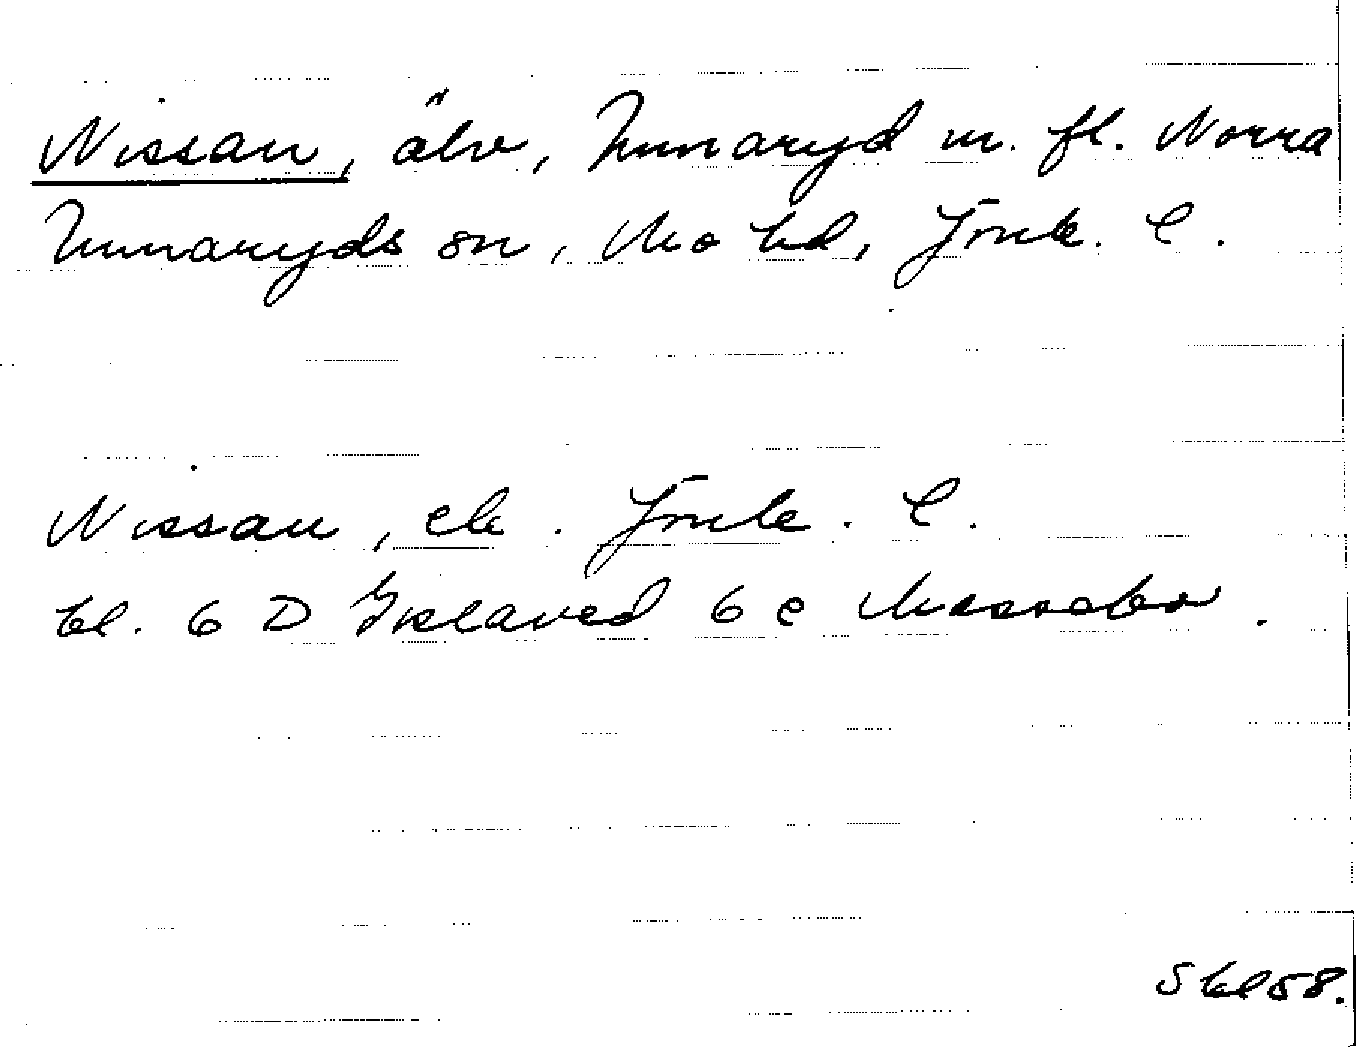 Nissan, älv, Unnaryd m. fl. Norra
Unnaryds sn, Mo hd, Jönk. l.
Nissan, ek. Jönk. l.
bl. 6 D Gislaved 6 C
S bl 58.